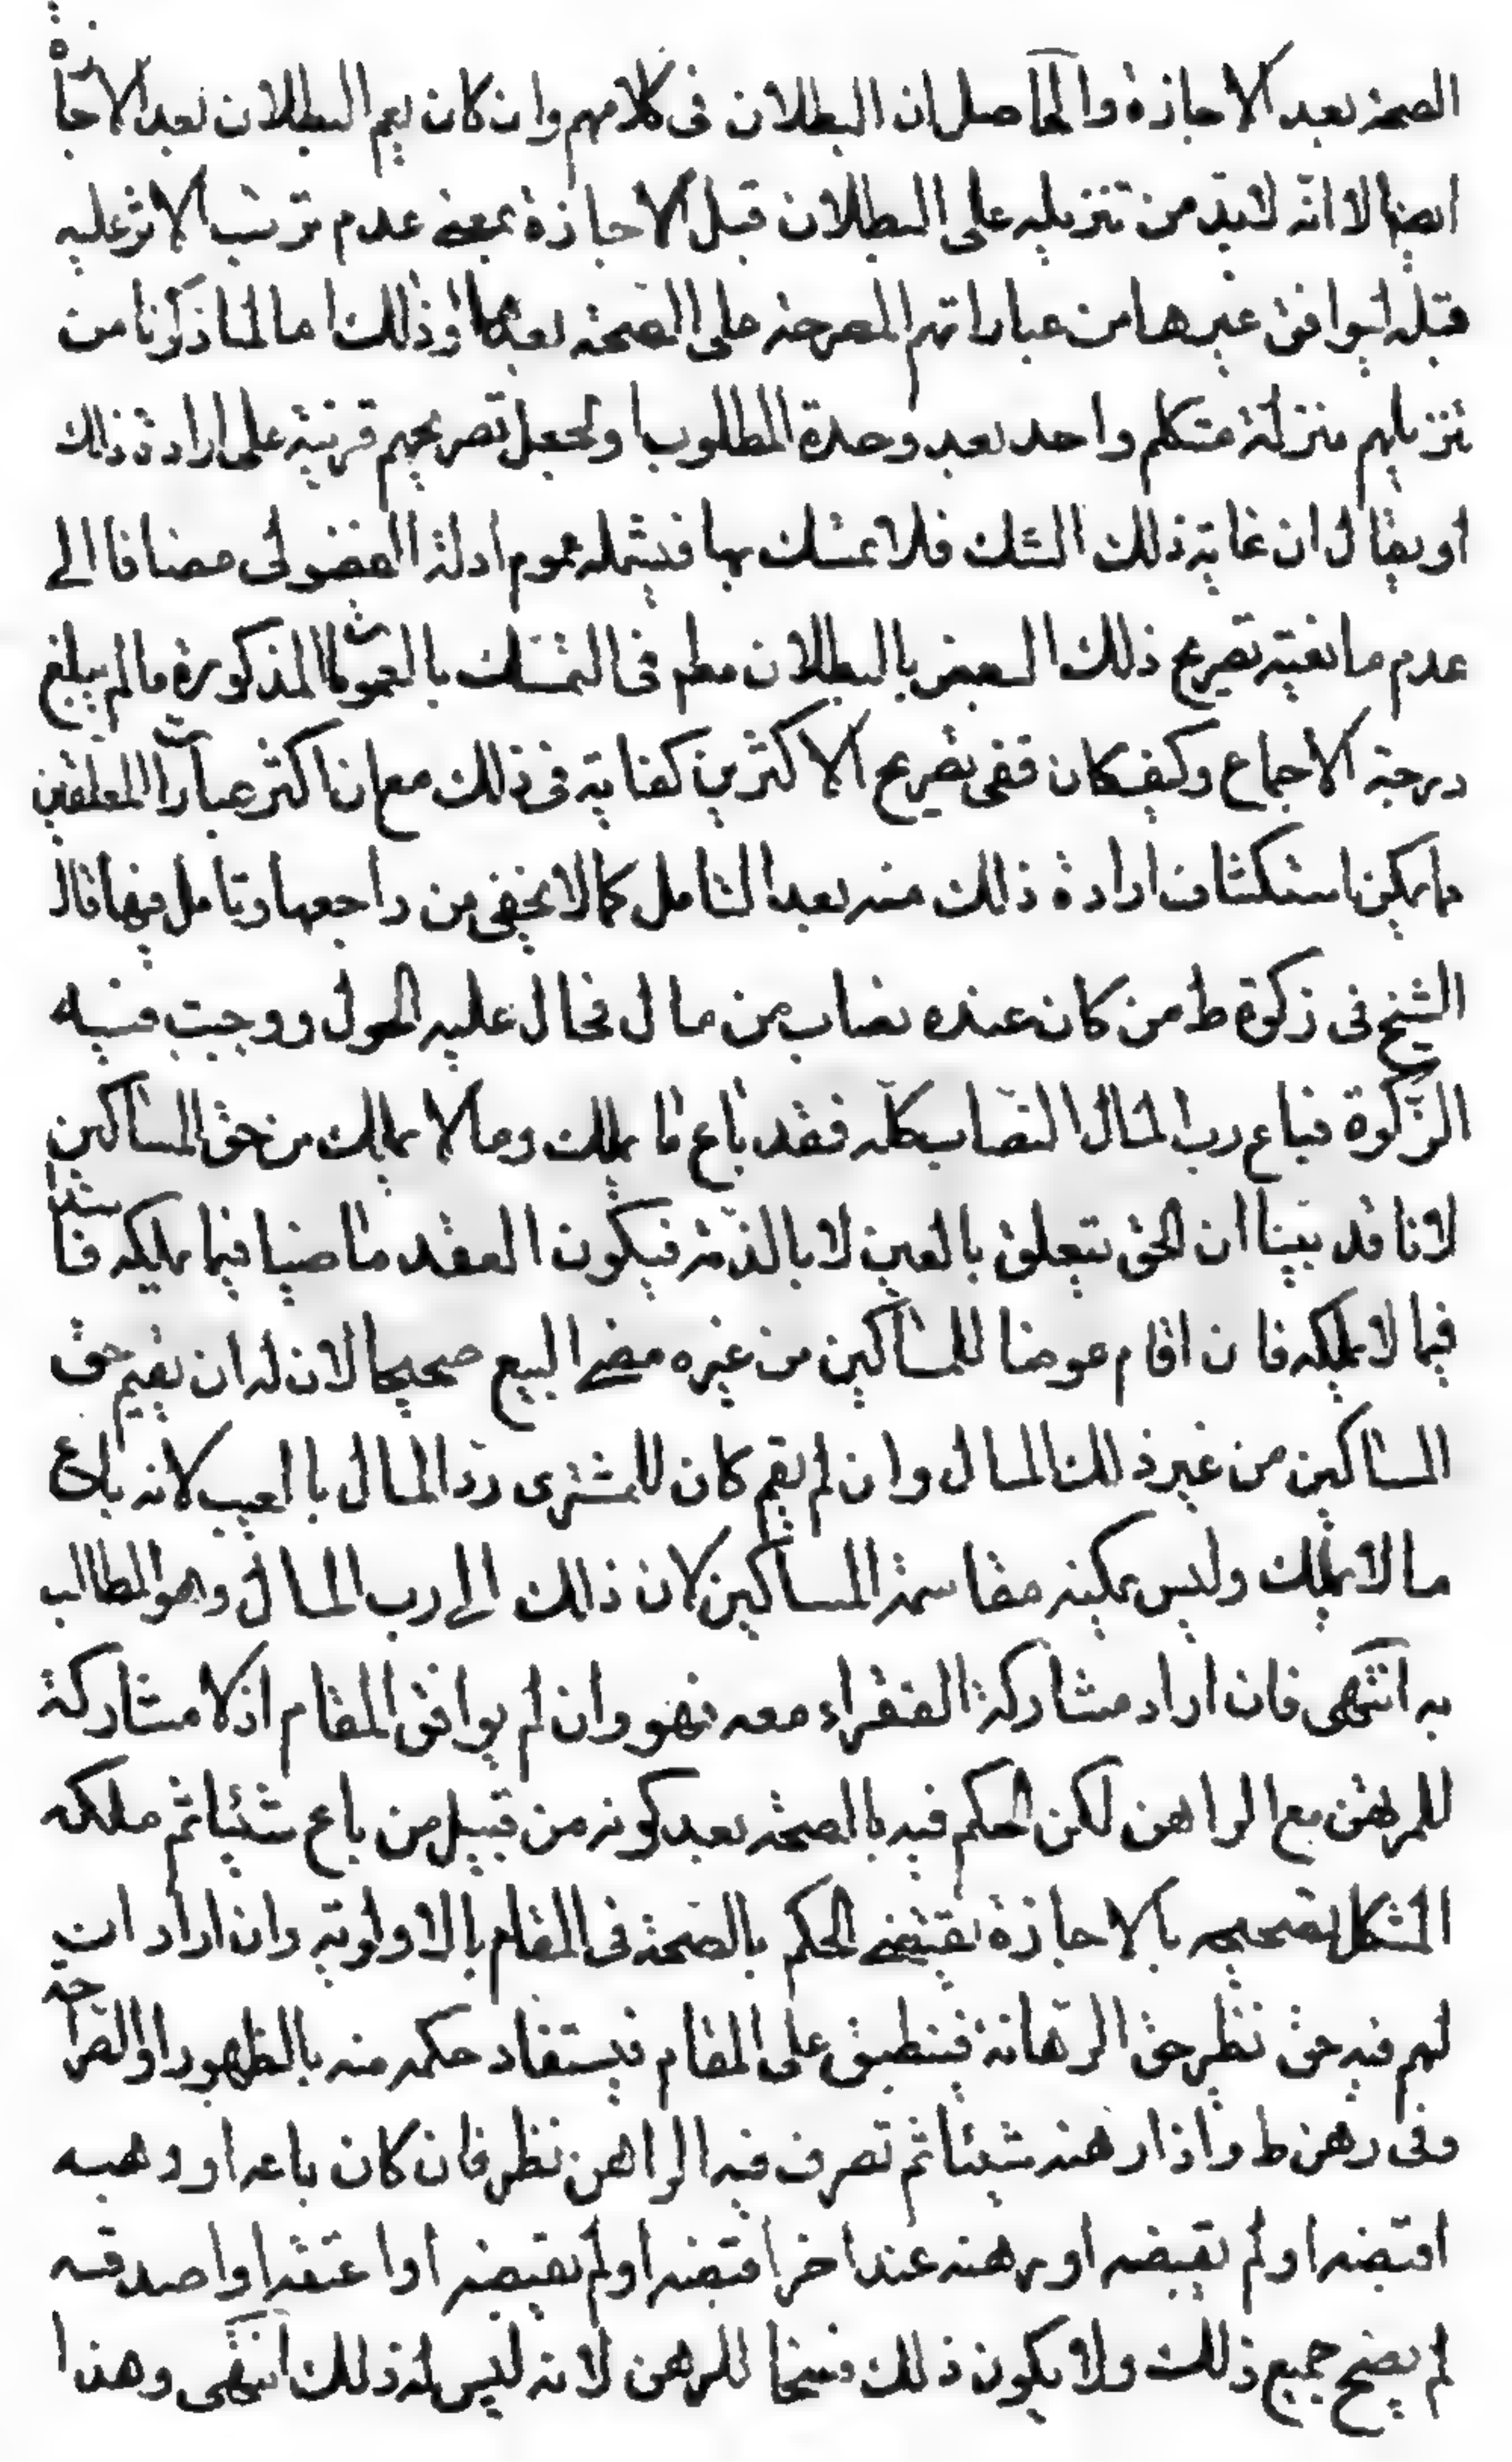 الصحة بعد الاجازة والحاصل ان البطلان فى كلامهم وان كان يعم البطلان بعد الاجازة
ايضا الا انه لابد من تنزيله على البطلان قبل الاجازة بمعنى عدم ترتب الاثر عليه
قبله ليوافق غيرها من عباراتهم المصرحة على الصحة بعدها وذلك اما لما ذكرنا من
تنزيلهم منزلة متكلم واحد بعد وحدة المطلوب او لجعل تصريحهم قرينة على ارادة ذلك
او يقال ان غاية ذلك الشك فلا تمسك بها فيشمله عموم ادلة الفضولى مضافا الى
عدم مانعية تصريح ذلك البعض بالبطلان مطم فى التمسك بالعمومات المذكورة ما لم يبلغ
درجة الاجماع وكيفكان ففى تصريح الاكثرين كفاية فى ذلك مع ان اكثر عبارات المطلقين
ما يمكن استكشاف ارادة ذلك منه بعد التامل كما لا يخفى من راجعها وتامل فيها قال
الشيخ فى زكوة ط من كان عنده نصاب من مال فحال عليه الحول ووجبت فيه
الزكوة فباع رب المال النصاب كله فقد باع ما يملك وما لا يملك من حق المساكين
لانا قد بينا ان الحق يتعلق بالعين لا بالذمة فيكون العقد ماضيا فيما يملكه فاسدا
فيما لا يملكه فان اقام عوضا للمساكين من غيره مضى البيع صحيحا لان له ان يقيم حق
المساكين من غير ذلك المال وان لم يقم كان للمشترى رد المال بالعيب لانه باع
ما لا يملك وليس يمكنه مقاسمة المساكين لان ذلك الى رب المال وهو المطالب
به انتهى فان اراد مشاركة الفقراء معه فهو وان لم يوافق المقام اذ لا مشاركة
للمرتهن مع الراهن لكن الحكم فيه بالصحة بعد كونه من قبيل من باع شيئا ثم ملكه
المشكل تصحيحه بالاجازة يقتضى الحكم بالصحة فى المقام بالاولوية وان اراد ان
لهم فيه حق نظير حق الرهانة فينطبق على المقام فيستفاد حكمه منه بالظهور او الصراحة
وفى رهن ط واذا رهنه شيئا ثم تصرف فيه الراهن نظر فان كان باعه او وهبه
اقبضه او لم يقبضه او رهنه عند اخر اقبضه او لم يقبضه او اعتقه او اصدقه
لم يصح جميع ذلك ولا يكون ذلك فسخا للرهن لانه ليس له ذلك انتهى وهذا